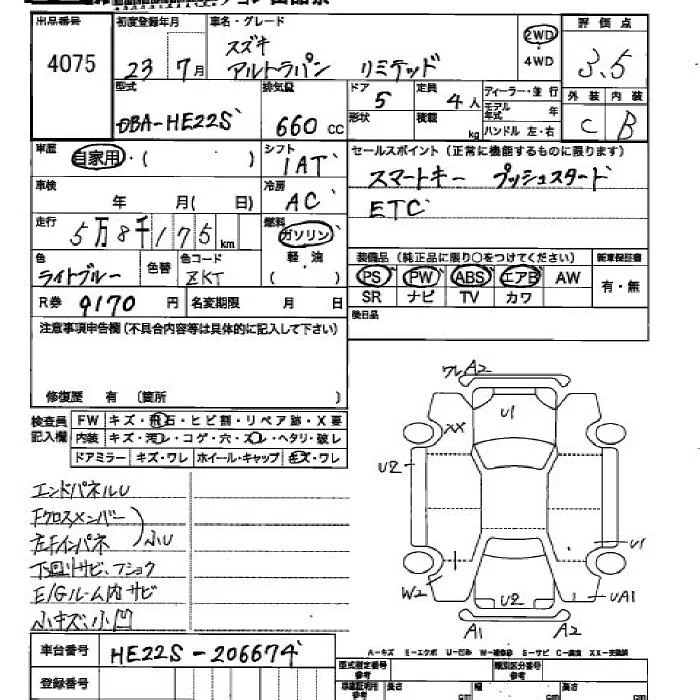 出品番号 初度登録年月 車名・グレード 評価点
4075 23年7月 スズキ 2WD 3.5
アルトラパン リミテッド 4WD
外装 内装
C B
型式 排気量 ドア 定員 ディーラー・並行
DBA-HE22S 660cc 5 4人 モデル年式 年
形状 積載 kg ハンドル 左・右
車歴 自家用・( ) シフト 1AT セールスポイント(正常に機能するものに限ります)
スマートキー プッシュスタード
車検 年 月( 日) 冷房 AC ETC
走行 5万8千175km 燃料 ガソリン
軽・油
( )
装備品(純正品に限り○をつけてください) 新車保証書
PS PW ABS エアB AW 有・無
SR ナビ TV カワ
色 ライトブルー 色替 色コード ZKT
後日品
R券 9170円 名変期限 月 日
注意事項申告欄(不具合内容等は具体的に記入して下さい)
修復歴 有 (箇所 )
検査員記入欄 FW キズ・飛石・ヒビ割・リペア跡・X要
内装 キズ・汚レ・コゲ・穴・スレ・ヘタリ・破レ
ドアミラー キズ・ワレ ホイール・キャップ キズ・ワレ
ワレA2
U1
XX
U2
U1
W2 U2 UA1
A1 A2
エンドパネルU
Fクロスメンバー
左Fインパネ 小U
下回リサビ、フショク
E/Gルーム内サビ
小キズ、小凹
A-キズ E-エクボ U-凹み W-補修跡 S-サビ C-腐食 XX-交換済
車台番号 HE22S-206674
型式指定番号 参考 類別区分番号 参考
登録番号 長さ cm 幅 cm 高さ cm